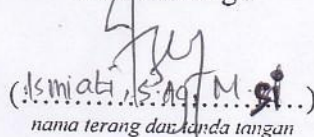 (Ismiati, S.Ag, M.si)
nama terang dan tanda tangan